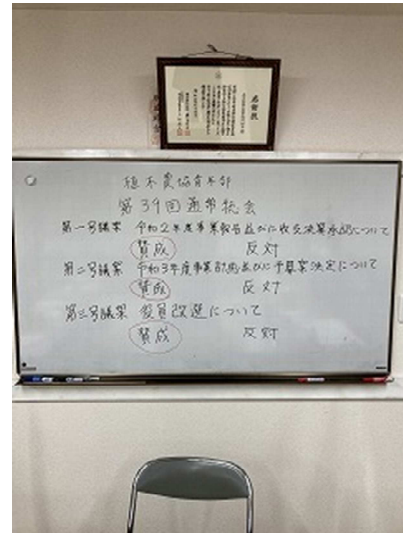 感謝状
植木農協青年部
第39回通常総会
第一号議案 令和2年度事業報告並びに収支決算承認について
賛成 反対
第二号議案 令和3年度事業計画並びに予算案決定について
賛成 反対
第三号議案 役員改選について
賛成 反対